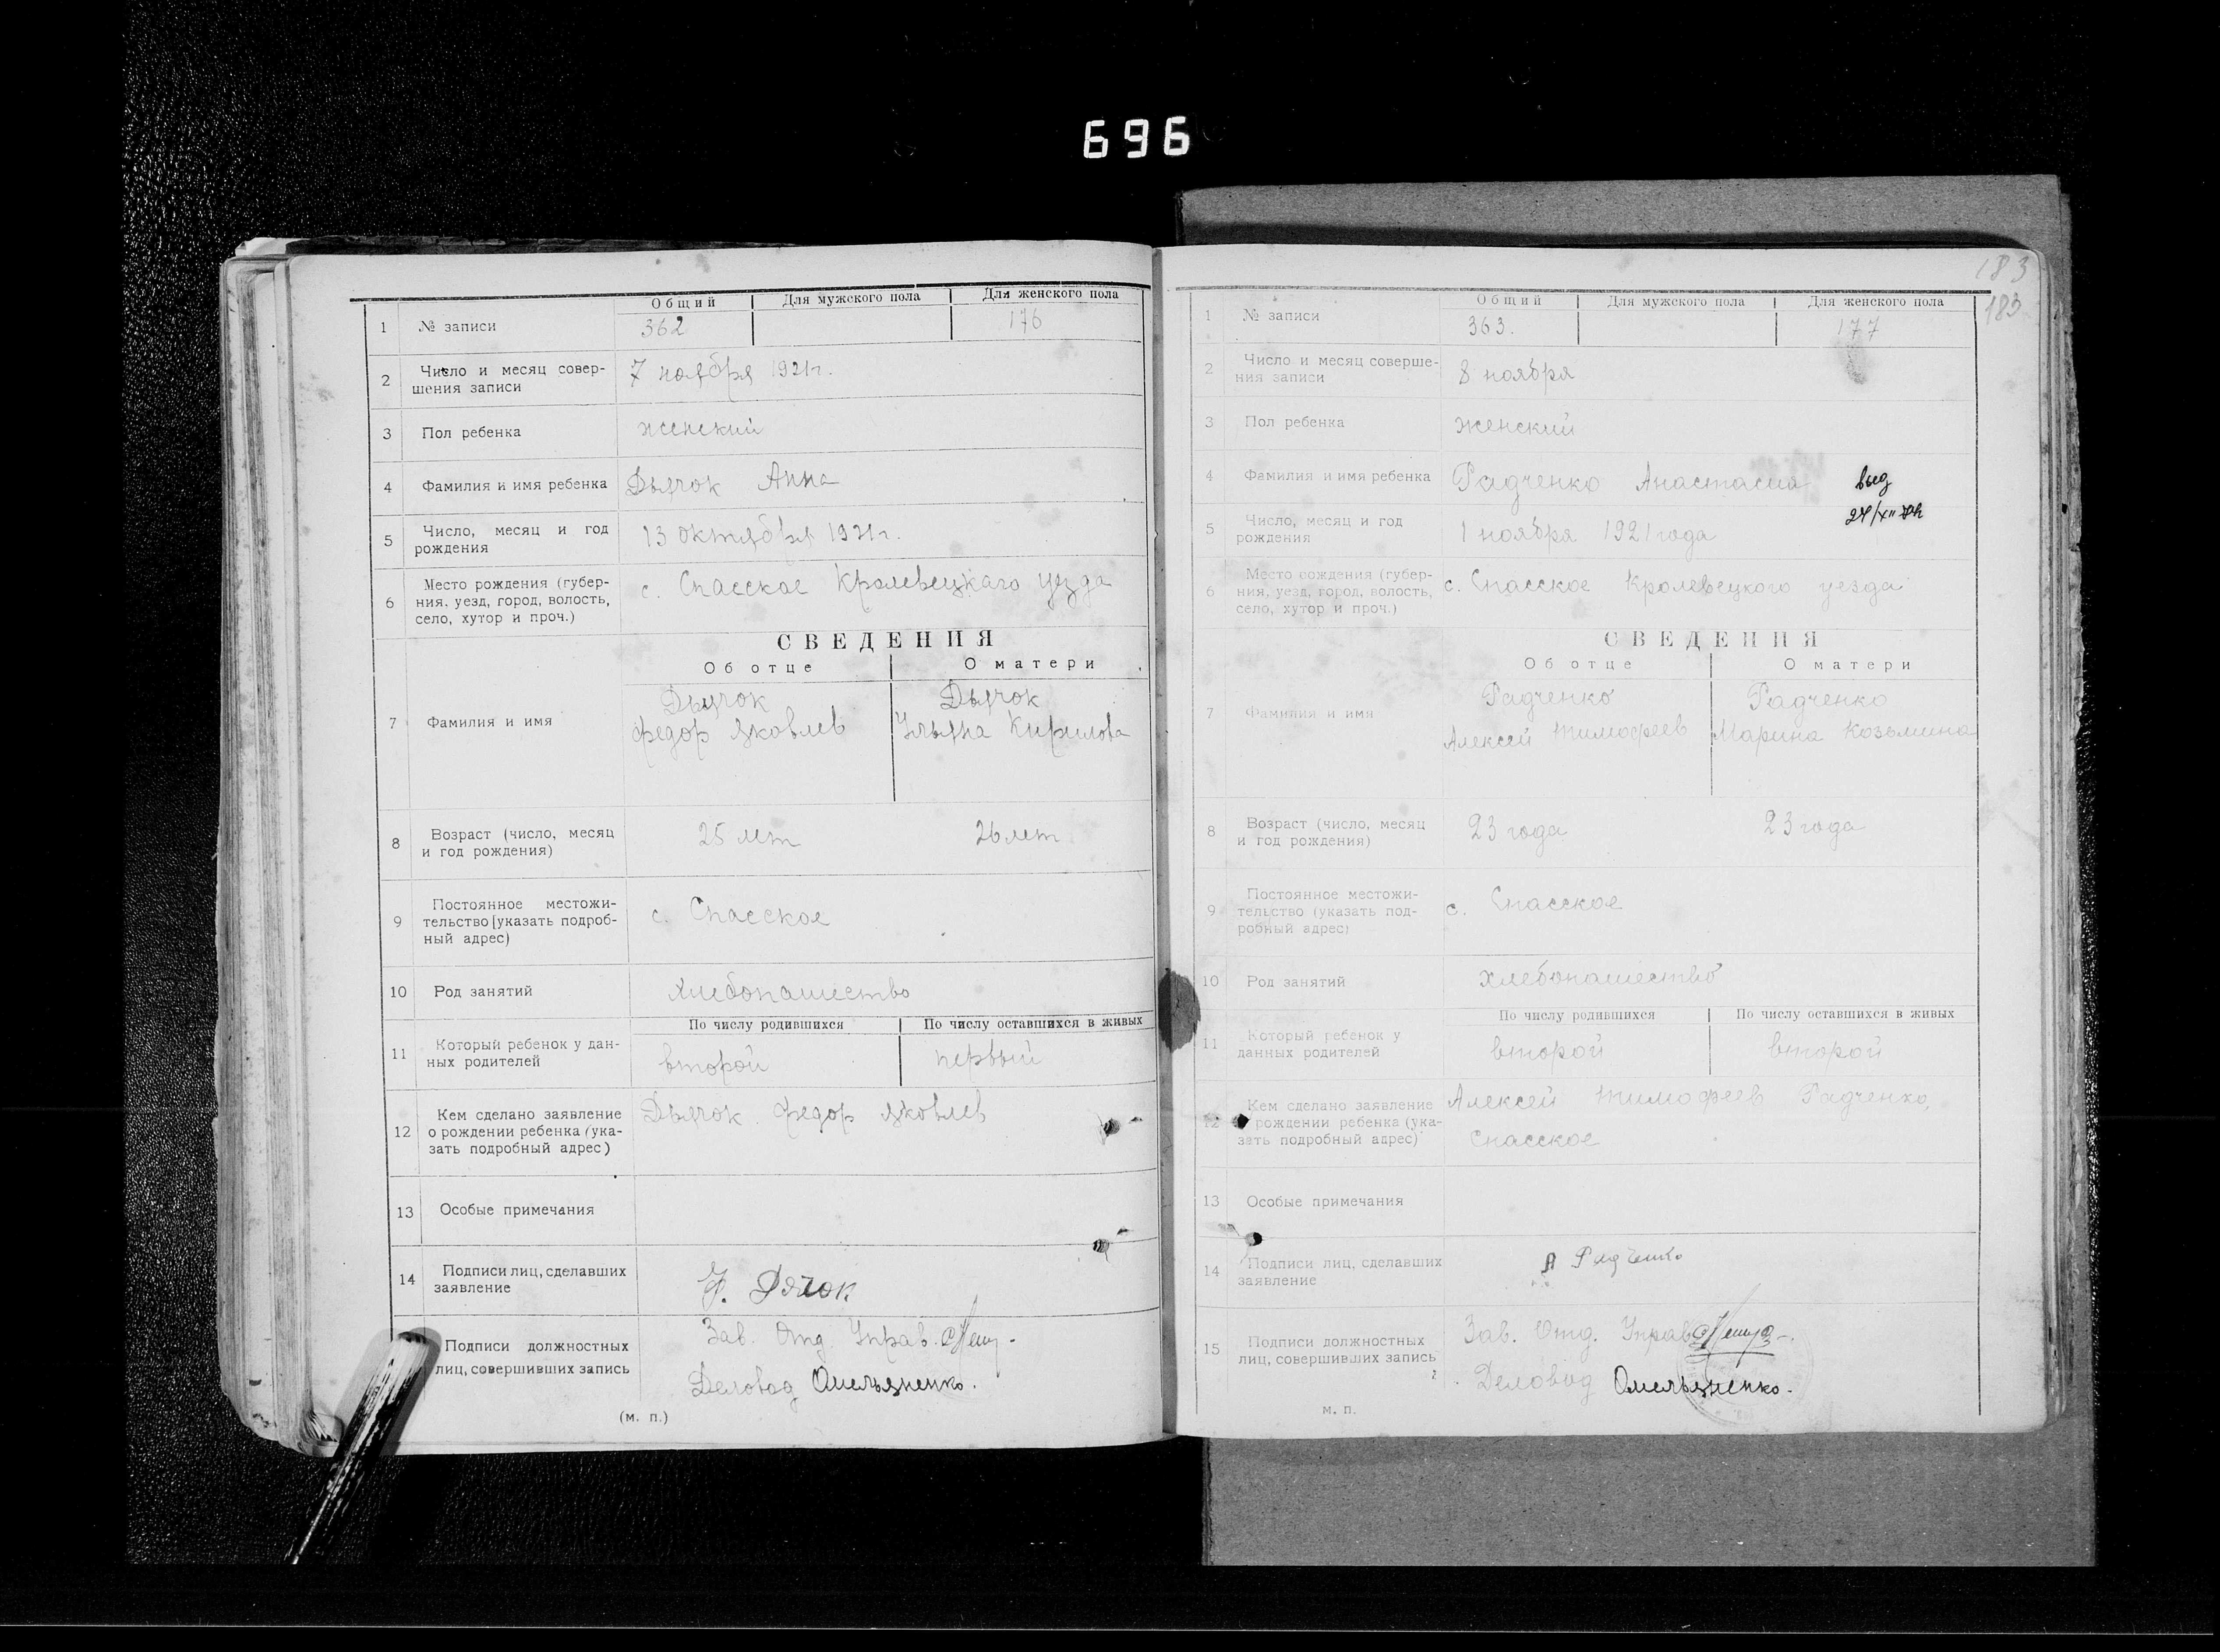 696
Общий Для мужского пола Для женского пола
1 № записи 362 176
2 Число и месяц совер-
шения записи
7 ноября 1921г.
3 Пол ребенка женский
4 Фамилия и имя ребенка Дьячок Анна
5 Число, месяц и год
рождения
13 октября 1921г.
6 Место рождения (губер-
ния, уезд, город, волость,
село, хутор и проч.)
с. Спасское Кролевецкаго уезда
СВЕДЕНИЯ
Об отце О матери
7 Фамилия и имя
Дьячок Дьячок
Федор Яковлев Ульяна Кирилова
8 Возраст (число, месяц
и год рождения)
25 лет 26 лет
9 Постоянное местожи-
тельство [указать подроб-
ный адрес)
с. Спасское
10 Род занятий хлебопашество
По числу родившихся По числу оставшихся в живых
11 Который ребенок у дан-
ных родителей
второй первый
12 Кем сделано заявление
о рождении ребенка (ука-
зать подробный адрес)
Дьячок Федор Яковлев
13 Особые примечания
14 Подписи лиц, сделавших
заявление
Ф. Дячок
Подписи должностных
лиц, совершивших запись
Зав. Отд. Управ.
Деловод Омельяненко.
(м. п.)
183
183
Общий Для мужского пола Для женского пола
1 № записи 363. 177
2 Число и месяц соверше-
ния записи
8 ноября
3 Пол ребенка женский
4 Фамилия и имя ребенка Радченко Анастасия
выд
5 Число, месяц и год
рождения
1 ноября 1921 года
6 Место рождения (губер-
ния, уезд, город, волость,
село, хутор и проч.)
с. Спасское Кролевецкого уезда
СВЕДЕНИЯ
Об отце О матери
7 Фамилия и имя
Радченко Радченко
Алексей Тимофеев Марина Козьмина
8 Возраст (число, месяц
и год рождения)
23 года 23 года
9 Постоянное местожи-
тельство (указать под-
робный адрес)
с. Спасское
10 Род занятий хлебопашество
По числу родившихся По числу оставшихся в живых
11 Который ребенок у
данных родителей
второй второй
12 Кем сделано заявление
рождении ребенка (ука-
зать подробный адрес)
Алексей Тимофеев Радченко,
Спасское
13 Особые примечания
14 Подписи лиц, сделавших
заявление
А Радченко
15 Подписи должностных
лиц, совершивших запись
Зав. Отд. Управ
Деловод Омельяненко.
м. п.